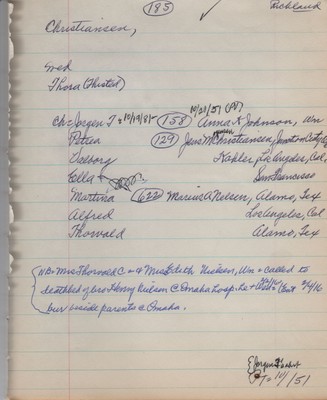 185
Richland
Christiansen,
Fred
Thora (Thisted)
10/20/51 (PF)
Ch = Jorgen T = 10/19/81 - 158 Anna K Johnson, Wn
Petrea 129 Jens M Christiansen, Junction City, Or
Valborg Kohler, Los Angeles, Cal.
Ella + San Francisco
Martina 622 Marius A Nelsen, Alamo, Tex
Alfred Los Angeles, Cal
Thorvald Alamo, Tex
NB = Mrs Thorvald C = & Mrs Edith Nielsen, Wn = called to
deathbed of bro Henry Nielsen @ Omaha hosp. 2/4/16
bur beside parents @ Omaha.
10/51